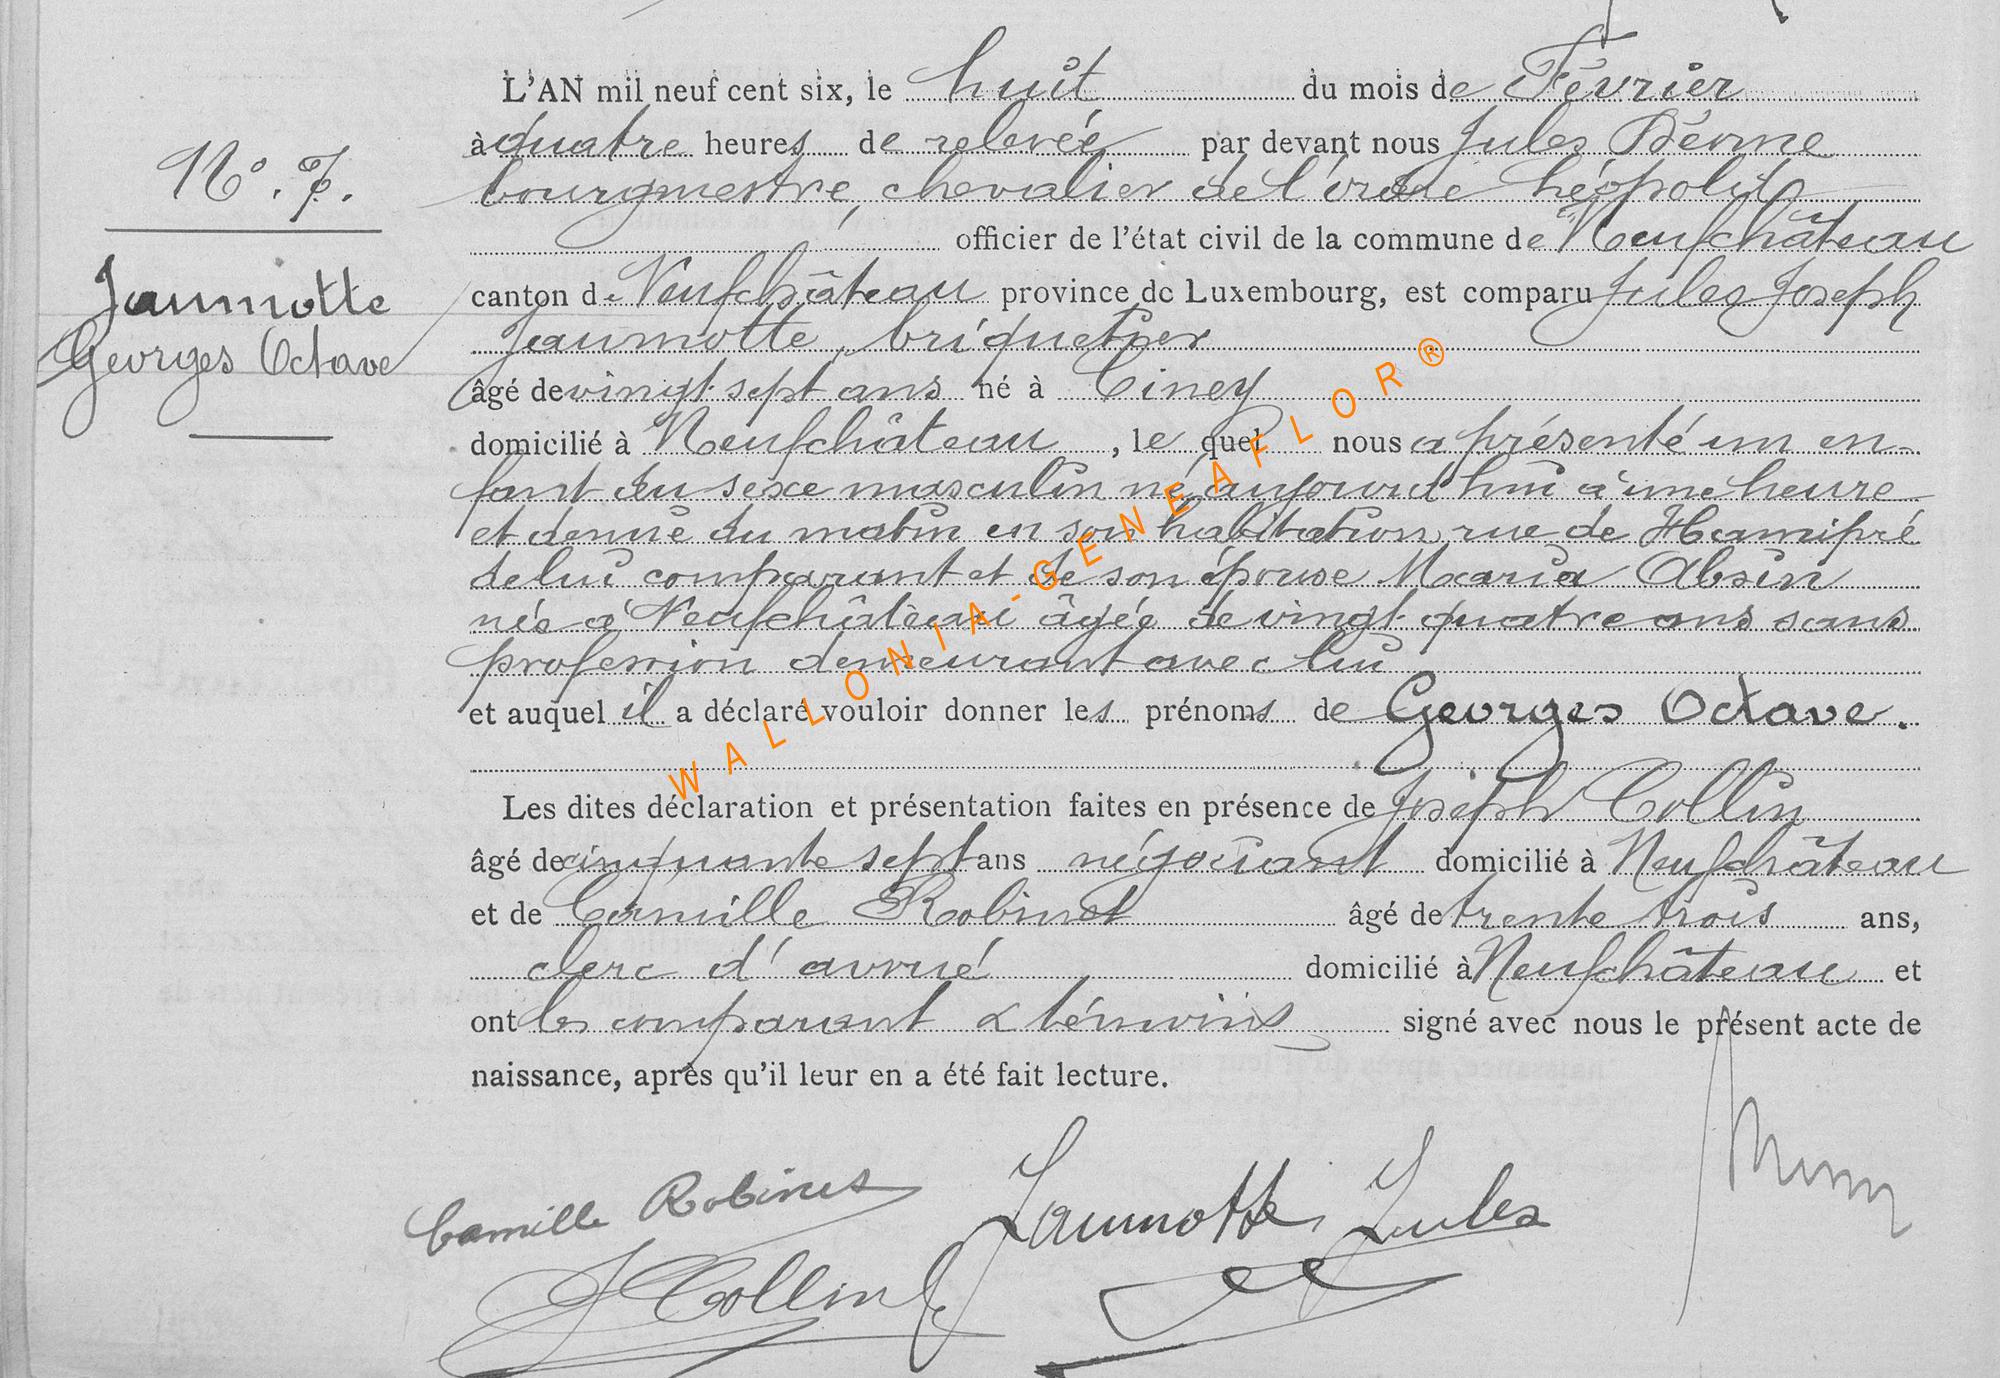 L'AN mil neuf cent six, le huit du mois de Février
à quatre heures de relevée par devant nous Jules
N°. 7.
bourgmestre, chevalier de l'ordre Léopold
officier de l'état civil de la commune de Neufchâteau
Jaumotte
canton de Neufchâteau province de Luxembourg, est comparu Jules Joseph
Georges Octave
Jaumotte, briquetier
âgé de vingt-sept ans né à Ciney
domicilié à Neufchâteau, le quel nous a présenté un en-
fant du sexe masculin né aujourd'hui à une heure
et demie du matin en son habitation, rue de Hamipré
de lui comparant et de son épouse Maria Absin
née à Neufchâteau âgée de vingt-quatre ans sans
profession demeurant avec lui
et auquel il a déclaré vouloir donner les prénoms de Georges Octave.
Les dites déclaration et présentation faites en présence de Joseph Collin
âgé de cinquante sept ans négociant domicilié à Neufchâteau
et de Camille Robinet âgé de trente trois ans,
clerc d'avoué domicilié à Neufchâteau et
ont les comparant & témoins signé avec nous le présent acte de
naissance, après qu'il leur en a été fait lecture.
Camille Robinet Jaumotte Jules
J Collin
WALLONIA-GENEAFLOR®